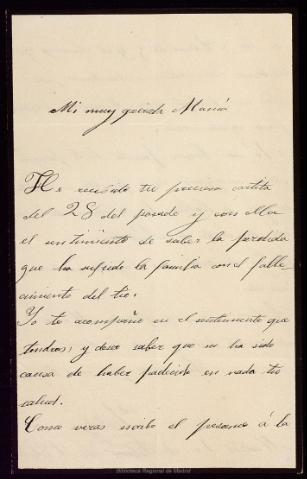 Mi muy querida María
He recibido tu preciosa cartita
del 28 del pasado y con ella
el sentimiento de saber la perdida
que ha sufrido la familia con el falle
cimiento del tio.
Yo te acompaño en el sentimiento que
tendras, y deseo saber que no ha sido
causa de haber padecido en nada tu
salud.
Como veras escribo el pesame á la
Biblioteca Regional de Madrid